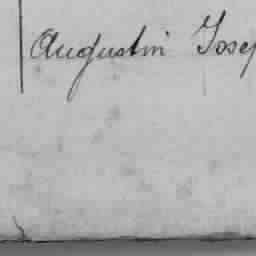 Augustin Josep